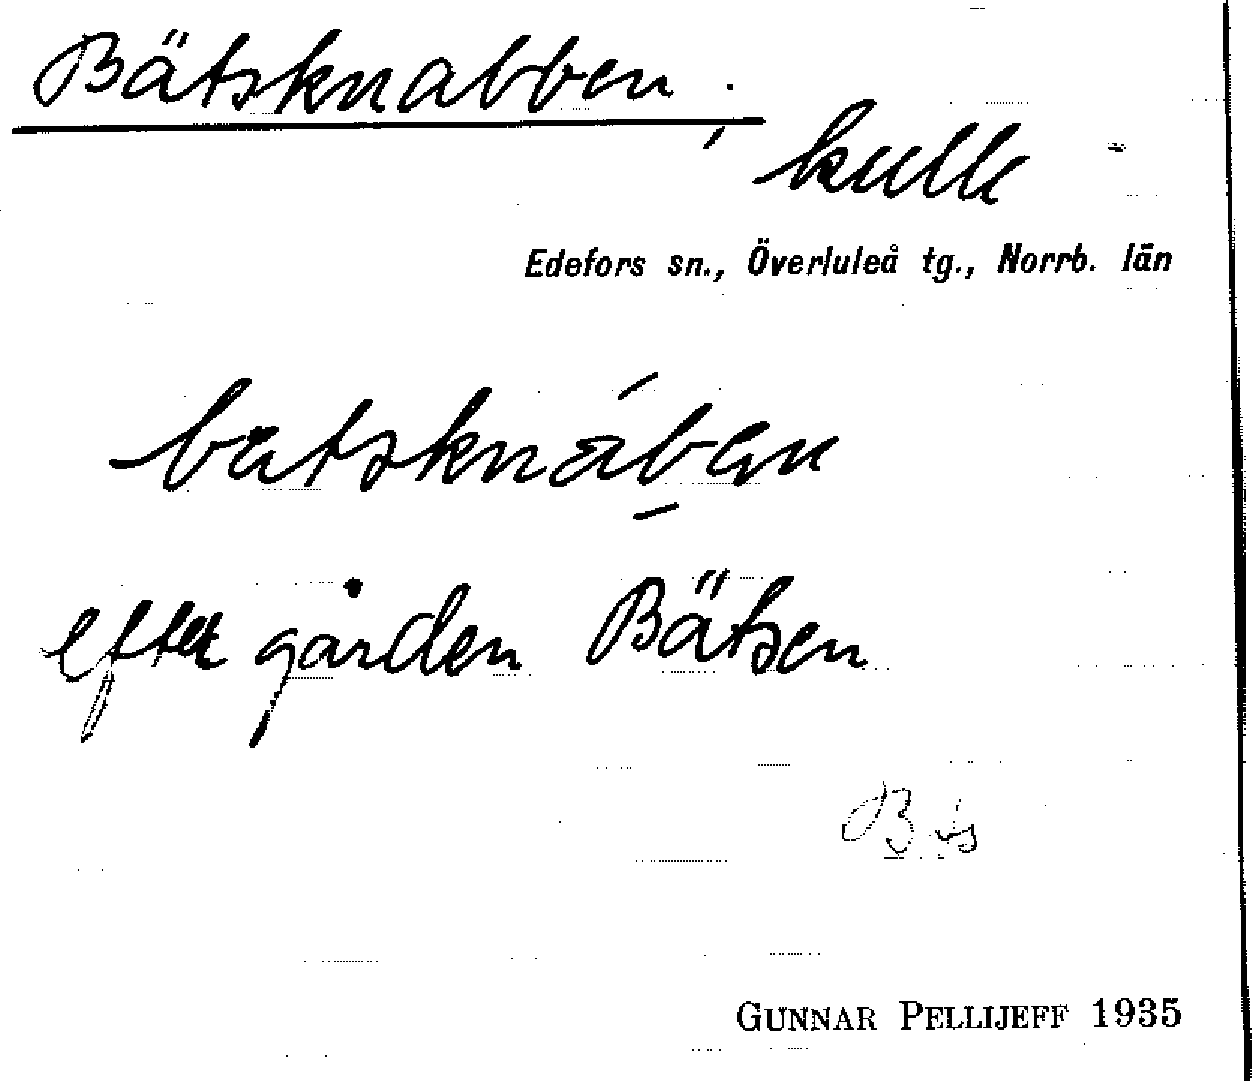 Bätsknabben,
kulle
Edefors sn., Överluleå tg., Norrb. län
batsknáben
efter gården Bätsen
GUNNAR PELLIJEFF 1935